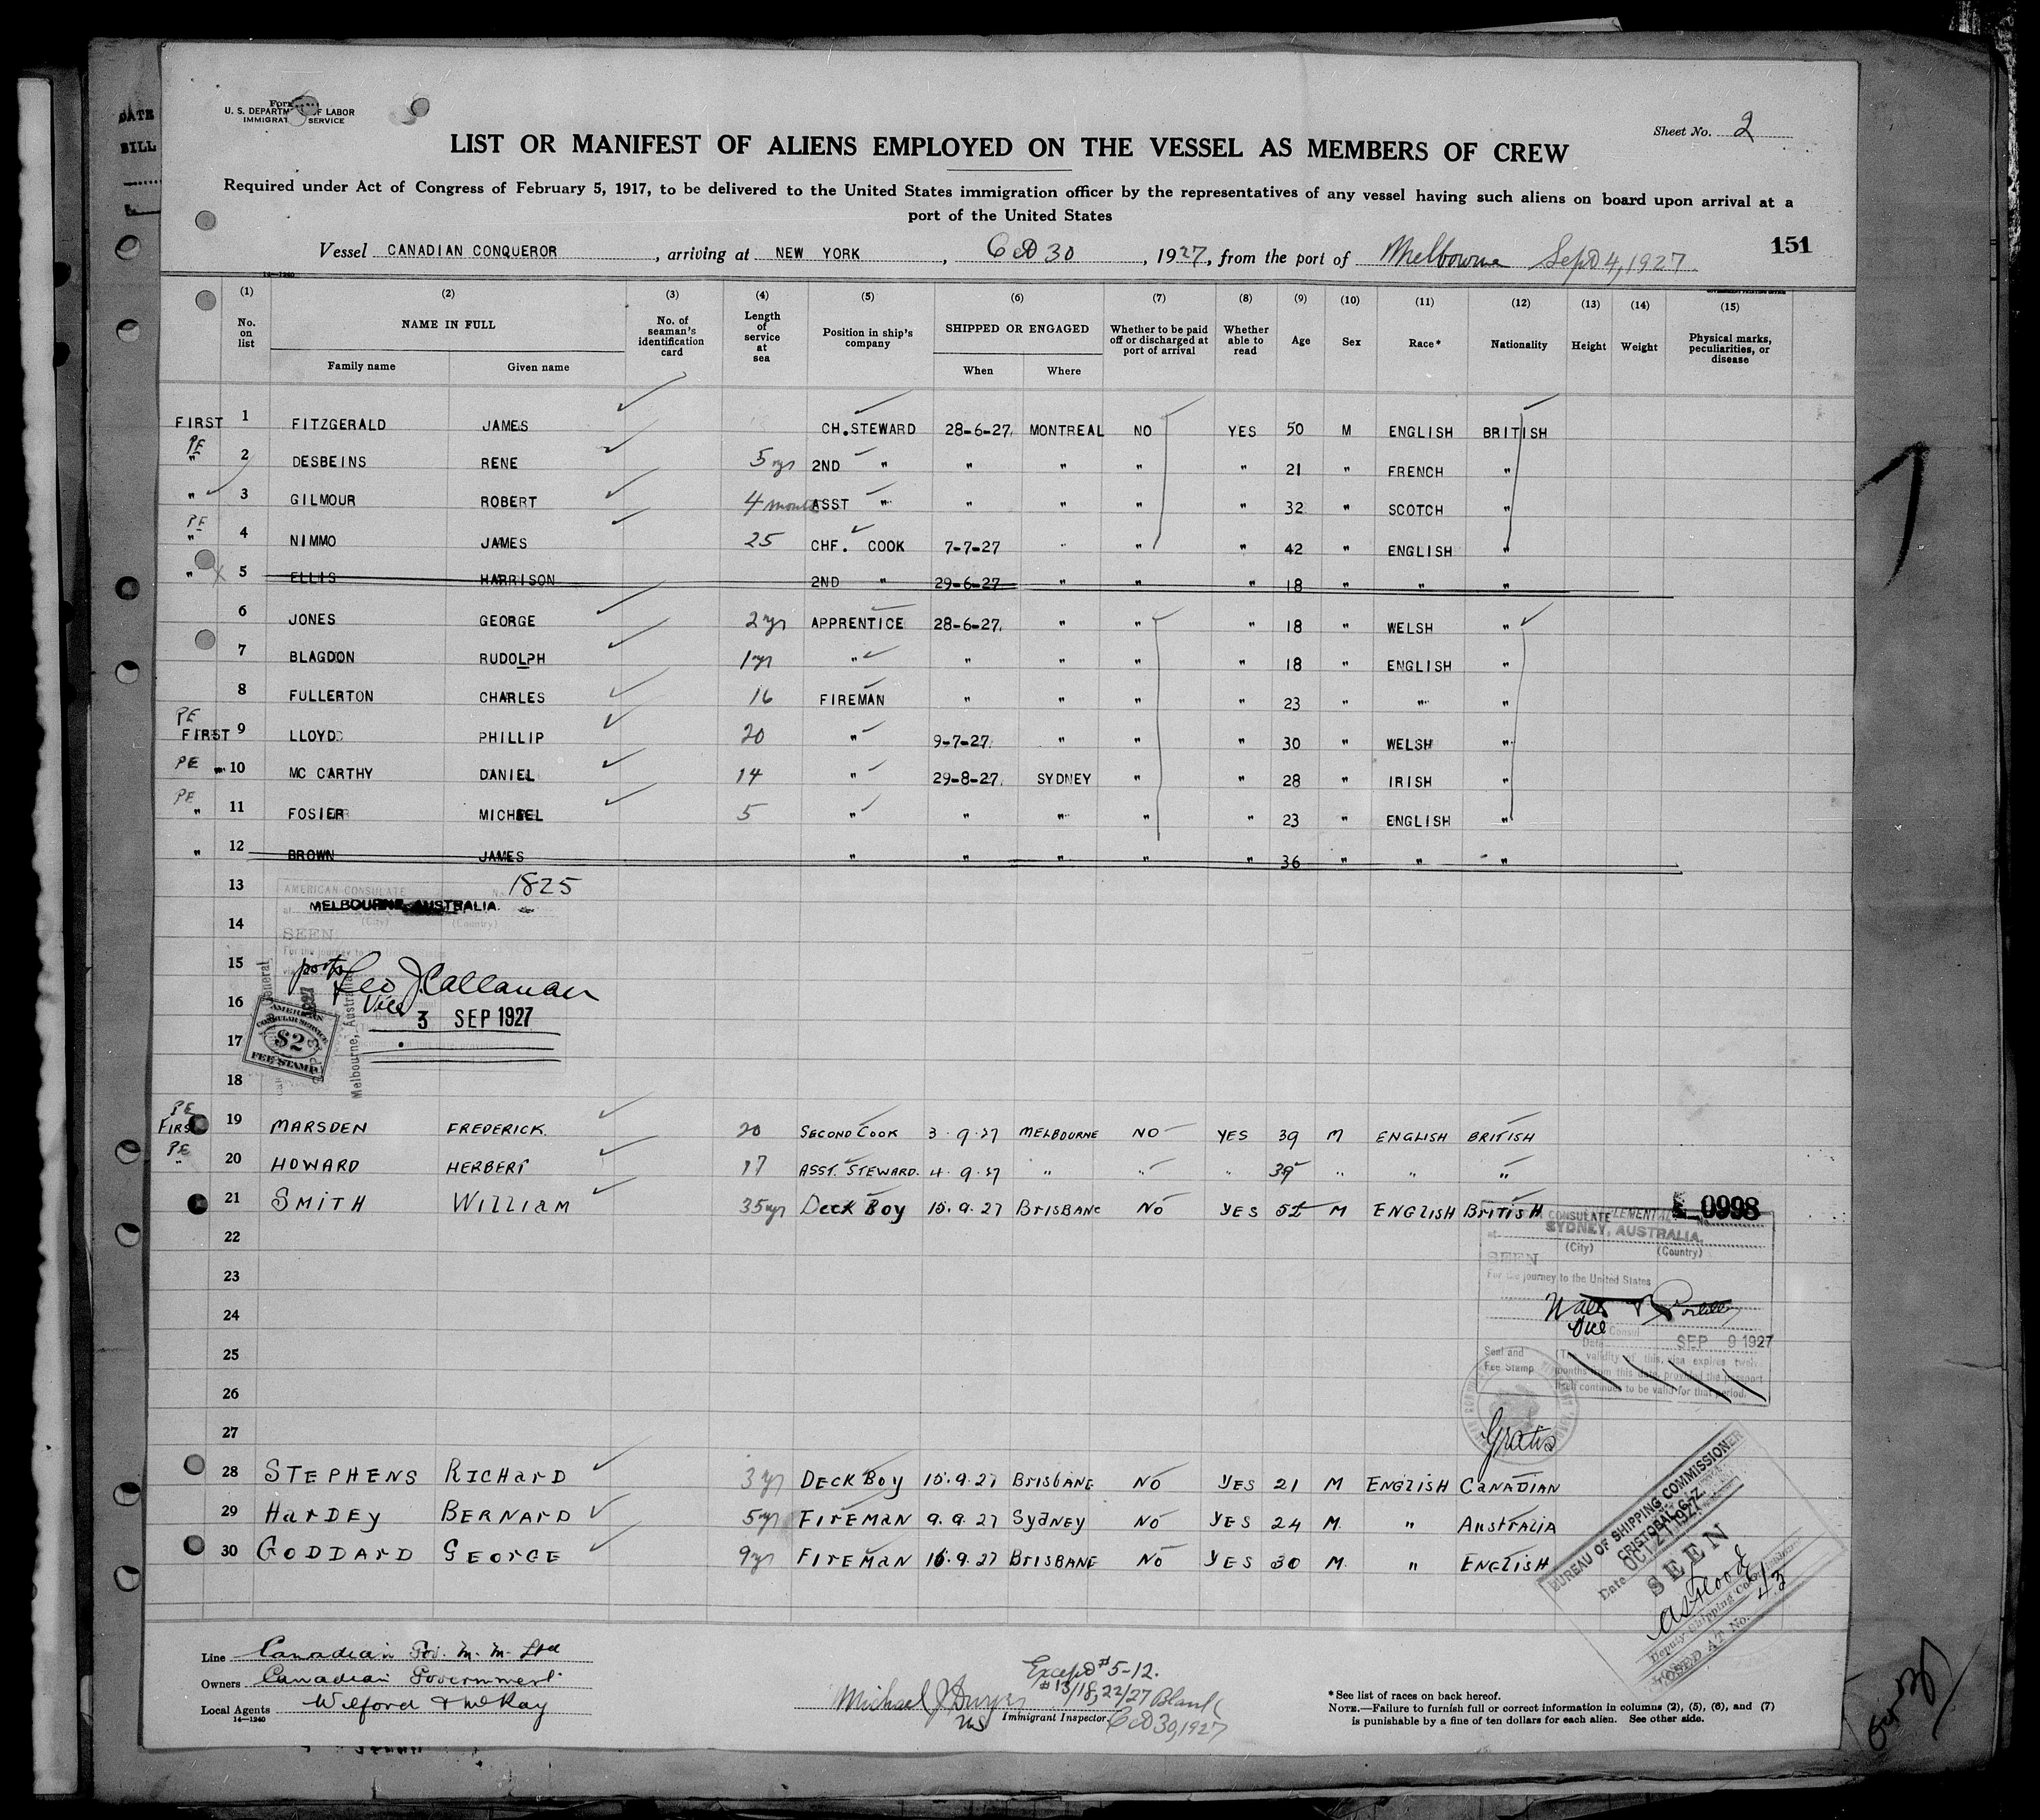 DATE
BILL
Form
U. S. DEPARTM OF LABOR
IMMIGRAT SERVICE
Sheet No. 2
LIST OR MANIFEST OF ALIENS EMPLOYED ON THE VESSEL AS MEMBERS OF CREW
Required under Act of Congress of February 5, 1917, to be delivered to the United States immigration officer by the representatives of any vessel having such aliens on board upon arrival at a
port of the United States
Vessel CANADIAN CONQUEROR, arriving at NEW YORK, Oct 30, 1927, from the port of Melbourne Sept 4, 1927.
151
14-1240
(1) (2) (3) (4) (5) (6) (7) (8) (9) (10) (11) (12) (13) (14) (15)
No. on list NAME IN FULL Family name Given name No. of seaman's identification card Length of service at sea Position in ship's company SHIPPED OR ENGAGED When Where Whether to be paid off or discharged at port of arrival Whether able to read Age Sex Race* Nationality Height Weight Physical marks, peculiarities, or disease
FIRST 1 FITZGERALD JAMES CH. STEWARD 28-6-27. MONTREAL NO YES 50 M ENGLISH BRITISH
PE " 2 DESBEINS RENE 5 yr 2ND " " " " " 21 " FRENCH "
" 3 GILMOUR ROBERT 4 ASST " " " " " 32 " SCOTCH "
PE " 4 NIMMO JAMES 25 CHF. COOK 7-7-27 " " " 42 " ENGLISH "
" 5 ELLIS HARRISON 2ND " 29-6-27 " " " 18 " " "
6 JONES GEORGE 2 yr APPRENTICE 28-6-27. " " " 18 " WELSH "
7 BLAGDON RUDOLPH 1 yr " " " " " 18 " ENGLISH "
8 FULLERTON CHARLES 16 FIREMAN " " " " 23 " " "
PE FIRST 9 LLOYD PHILLIP 20 " 9-7-27. " " " 30 " WELSH "
PE " 10 MC CARTHY DANIEL 14 " 29-8-27. SYDNEY " " 28 " IRISH "
PE " 11 FOSIER MICHEL 5 " " " " " 23 " ENGLISH "
" 12 BROWN JAMES " " " " " 36 " " "
13
AMERICAN CONSULATE No. 1825
at MELBOURNE, AUSTRALIA.
(City) (Country)
14
SEEN
For the journey to the
15
Leo J. Callanan
16
Vice
3 SEP 1927
AMERICAN CONSULAR SERVICE $2 FEE STAMP
Melbourne, Australia
17
18
PE FIRST 19 MARSDEN FREDERICK. 20 SECOND COOK 3.9.27 MELBOURNE NO YES 39 M ENGLISH BRITISH
PE " 20 HOWARD HERBERT 17 ASST. STEWARD. 4.9.27 " " " 39 " " "
21 SMITH WILLIAM 35 yr DECK BOY 15.9.27 BRISBANE NO YES M ENGLISH BRITISH
22
23
24
25
26
27
CONSULATE 0998
at SYDNEY, AUSTRALIA.
(City) (Country)
SEEN
For the journey to the United States
Vice Consul
Date SEP 9 1927
Seal and Fee Stamp
(The validity of this visa expires twelve
months from this date, provided the passport
itself continues to be valid for that period.
Gratis
28 STEPHENS RICHARD 3 yr DECK BOY 15.9.27 BRISBANE NO YES 21 M ENGLISH CANADIAN
29 HARDEY BERNARD 5 yr FIREMAN 9.9.27 SYDNEY NO YES 24 M. " AUSTRALIA
30 GODDARD GEORGE 9 yr FIREMAN 15.9.27 BRISBANE NO YES 30 M. " ENGLISH
BUREAU OF SHIPPING COMMISSIONER
CRISTOBAL, C. Z.
Date OCT 21 1927
SEEN
Deputy Shipping Commissioner
No. 43
Line Canadian Gov. M. M. Ltd
Owners Canadian Government
Local Agents Wilford & McKay
14-1240
Except # 5-12.
#13/18, 22/27 Blank
Michael J. Dwyer
Immigrant Inspector.
Oct 30, 1927
* See list of races on back hereof.
NOTE.—Failure to furnish full or correct information in columns (2), (5), (6), and (7)
is punishable by a fine of ten dollars for each alien. See other side.